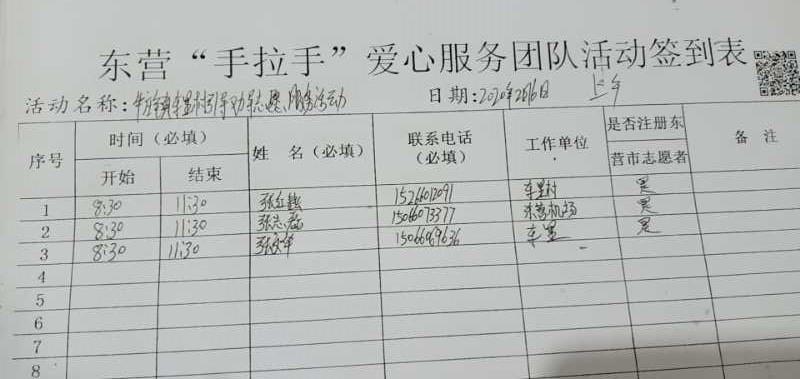 东营“手拉手”爱心服务团队活动签到表
活动名称：牛庄镇车里村引导劝志愿服务活动 日期：2020年2月6日 上午
序号 时间（必填） 姓 名（必填） 联系电话（必填） 工作单位 是否注册东营市志愿者 备 注
开始 结束
1 8:30 11:30 15266012091 车里村 是
2 8:30 11:30 张志磊 15066073377 东营机场 是
3 8:30 11:30 15066969636 车里 是
4
5
6
7
8